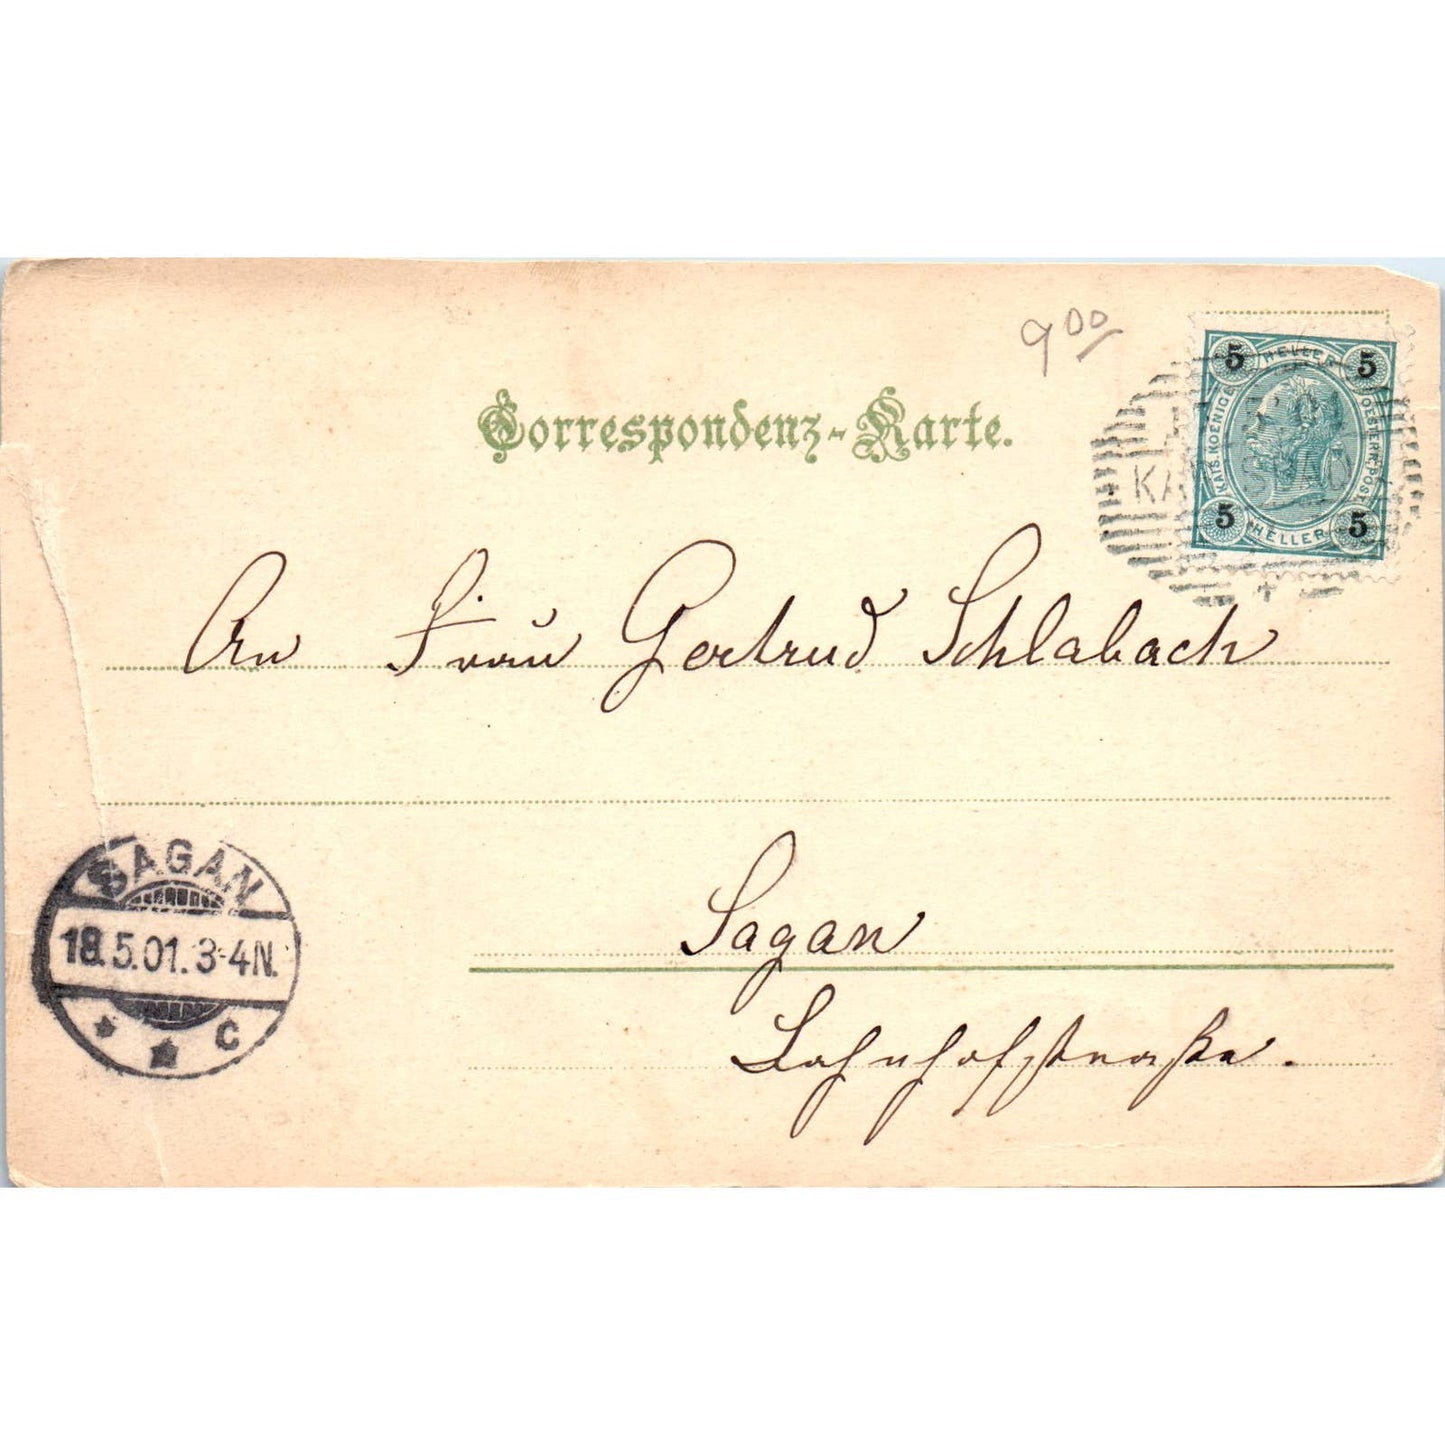 9 00
Correspondenz-Karte.
5 HELLER 5
KAIS. KOENIGL. OESTERR. POST
5 HELLER 5
An Frau Gertrud Schlabach
SAGAN
18.5.01.3-4N.
* * C
Sagan
Bahnhofstraße.